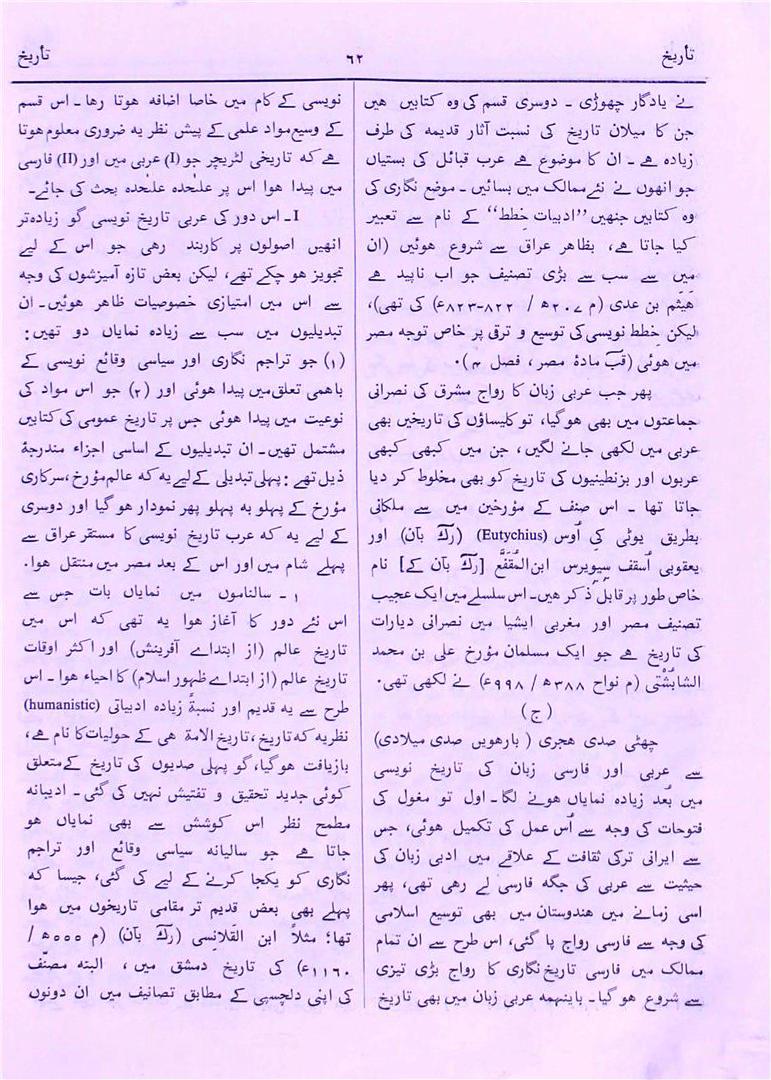 تأریخ
٦٢
تأریخ
نے یادگار چھوڑی ۔ دوسری قسم کی وہ کتابیں ھیں
جن کا میلان تاریخ کی نسبت آثار قدیمه کی طرف
زیاده ھے ۔ ان کا موضوع ھے عرب قبائل کی بستیاں
جو انھوں نے نئے ممالک میں بسائیں ۔ موضع نگاری کی
وہ کتابیں جنھیں ”ادبیات خِطط“ کے نام سے تعبیر
کیا جاتا ھے، بظاھر عراق سے شروع ھوئیں (ان
میں سے سب سے بڑی تصنیف جو اب ناپید ھے
ھَیثم بن عدی (م ٢٠٧ھ / ٨٢٢-٨٢٣ء) کی تھی)،
لیکن خِطط نویسی کی توسیع و ترقی پر خاص توجه مصر
میں ھوئی (قبَ مادۂ مصر، فصل ٣).
پھر جب عربی زبان کا رواج مشرق کی نصرانی
جماعتوں میں بھی ھوگیا، تو کلیساؤں کی تاریخیں بھی
عربی میں لکھی جانے لگیں، جن میں کبھی کبھی
عربوں اور بزنطینیوں کی تاریخ کو بھی مخلوط کر دیا
جاتا تھا ۔ اس صنف کے مؤرخین میں سے ملکانی
بطریق یوٹی کی اُوس (Eutychius) (رکَ بآن) اور
یعقوبی اُسقف سیویرس ابن المُقَفَّع [رکَ بآن کے] نام
خاص طور پر قابلِ ذکر ھیں۔ اس سلسلے میں ایک عجیب
تصنیف مصر اور مغربی ایشیا میں نصرانی دیارات
کی تاریخ ھے جو ایک مسلمان مؤرخ علی بن محمد
الشابُشْتی (م نواح ٣٨٨ھ / ٩٩٨ء) نے لکھی تھی.
(ج)
چھٹی صدی ھجری ( بارھویں صدی میلادی)
سے عربی اور فارسی زبان کی تاریخ نویسی
میں بُعد زیاده نمایاں ھونے لگا۔ اول تو مغول کی
فتوحات کی وجه سے اُس عمل کی تکمیل ھوئی، جس
سے ایرانی ترکی ثقافت کے علاقے میں ادبی زبان کی
حیثیت سے عربی کی جگه فارسی لے رھی تھی، پھر
اسی زمانے میں ھندوستان میں بھی توسیع اسلامی
کی وجه سے فارسی رواج پا گئی، اس طرح سے ان تمام
ممالک میں فارسی تاریخ نگاری کا رواج بڑی تیزی
سے شروع ھو گیا۔ باینھمه عربی زبان میں بھی تاریخ
نویسی کے کام میں خاصا اضافه ھوتا رھا ۔ اس قسم
کے وسیع مواد علمی کے پیش نظر یه ضروری معلوم ھوتا
ھے که تاریخی لٹریچر جو (I) عربی میں اور (II) فارسی
میں پیدا ھوا اس پر علٰحده علٰحده بحث کی جائے۔
I ۔ اس دور کی عربی تاریخ نویسی گو زیاده تر
انھیں اصولوں پر کاربند رھی جو اس کے لیے
تجویز ھو چکے تھے، لیکن بعض تازه آمیزشوں کی وجه
سے اس میں امتیازی خصوصیات ظاھر ھوئیں۔ ان
تبدیلیوں میں سب سے زیاده نمایاں دو تھیں:
(١) جو تراجم نگاری اور سیاسی وقائع نویسی کے
باھمی تعلق میں پیدا ھوئی اور (٢) جو اس مواد کی
نوعیت میں پیدا ھوئی جس پر تاریخ عمومی کی کتابیں
مشتمل تھیں۔ ان تبدیلیوں کے اساسی اجزاء مندرجۂ
ذیل تھے: پہلی تبدیلی کے لیے یه که عالم مؤرخ، سرکاری
مؤرخ کے پہلو به پہلو پھر نمودار ھو گیا اور دوسری
کے لیے یه که عرب تاریخ نویسی کا مستقر عراق سے
پہلے شام میں اور اس کے بعد مصر میں منتقل ھوا.
١ ۔ سالناموں میں نمایاں بات جس سے
اس نئے دور کا آغاز ھوا یه تھی که اس میں
تاریخ عالم (از ابتداے آفرینش) اور اکثر اوقات
تاریخ عالم (از ابتداے ظہور اسلام) کا احیاء ھوا ۔ اس
طرح سے یه قدیم اور نسبةً زیاده ادبیاتی (humanistic)
نظریه که تاریخ، تاریخ الامة ھی کے حولیات کا نام ھے،
بازیافت ھوگیا، گو پہلی صدیوں کی تاریخ کے متعلق
کوئی جدید تحقیق و تفتیش نہیں کی گئی ۔ ادیبانه
مطمح نظر اس کوشش سے بھی نمایاں ھو
جاتا ھے جو سالیانه سیاسی وقائع اور تراجم
نگاری کو یکجا کرنے کے لیے کی گئی، جیسا که
پہلے بھی بعض قدیم تر مقامی تاریخوں میں ھوا
تھا؛ مثلاً ابن القَلانِسی (رکَ بآن) (م ٥٥٥ھ /
١١٦٠ء) کی تاریخ دمشق میں، البته مصنّف
کی اپنی دلچسپی کے مطابق تصانیف میں ان دونوں